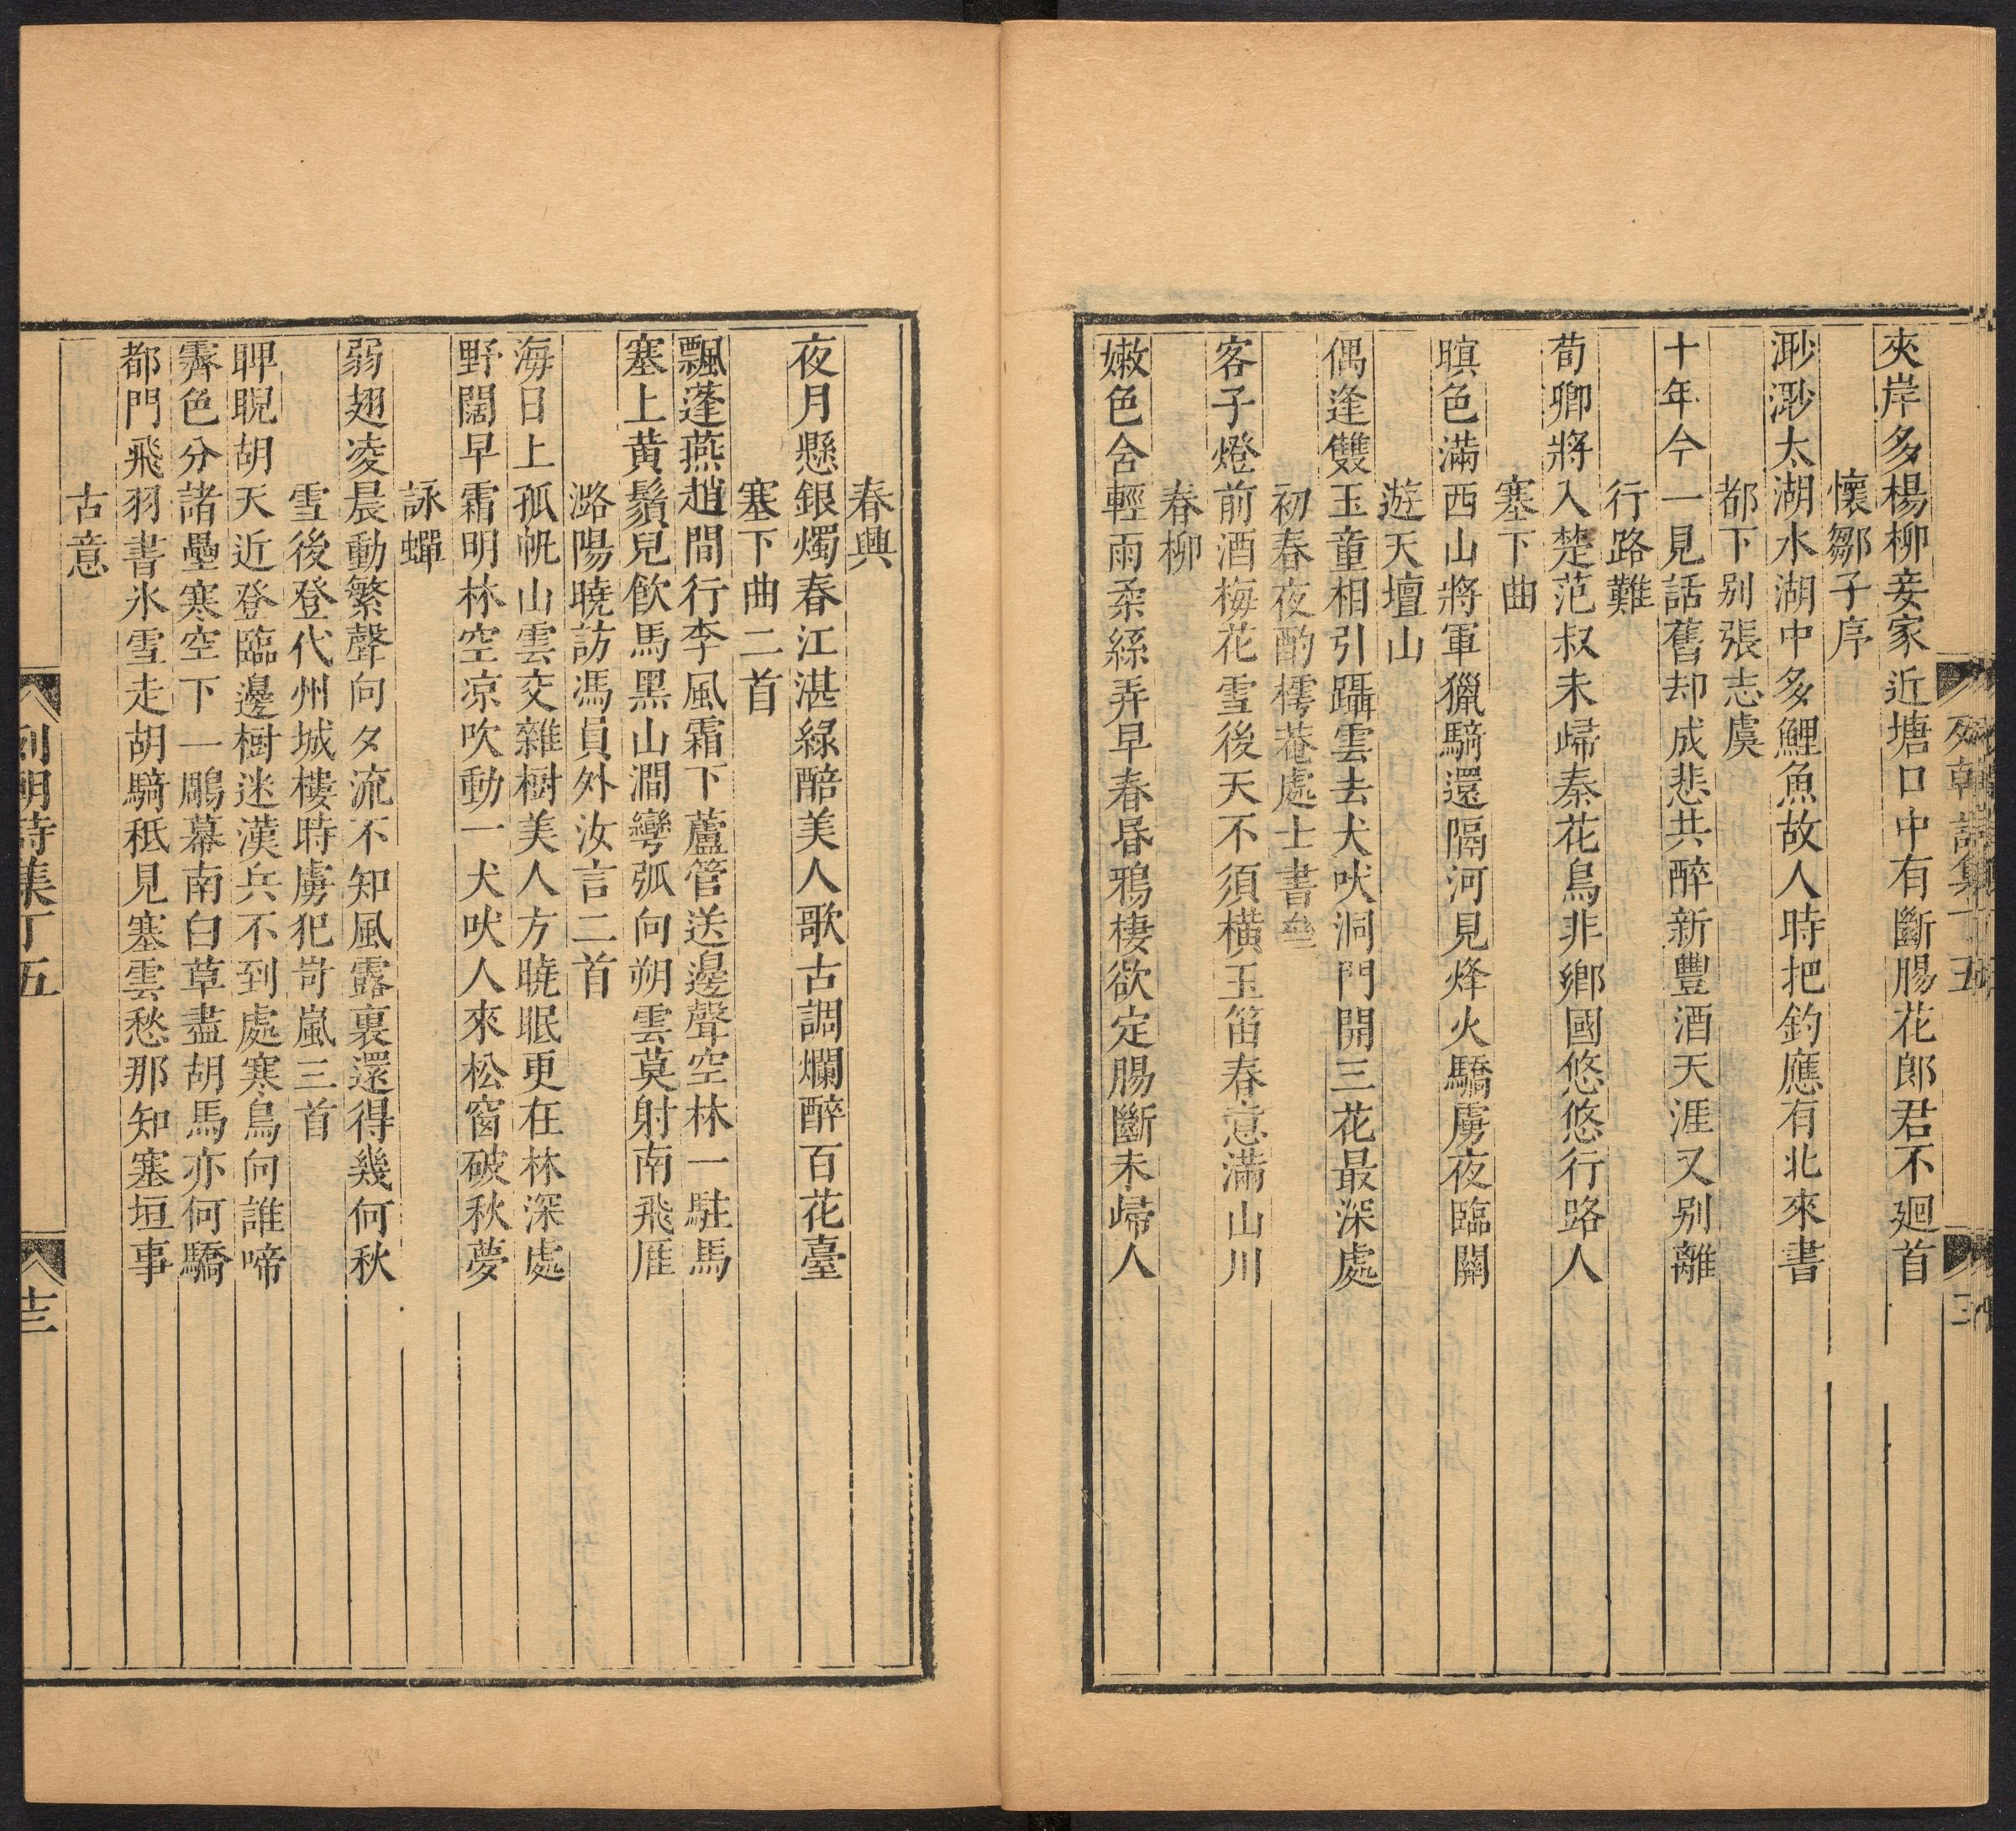 夾岸多楊柳妾家近塘口中有斷腸花郎君不廻首
懷鄒子序
渺渺太湖水湖中多鯉魚故人時把釣應有北來書
都下别張志虞
十年今一見話舊却成悲共醉新豐酒天涯又别離
行路難
荀卿將入楚范叔未歸秦花鳥非鄉國悠悠行路人
塞下曲
暝色滿西山將軍獵騎還隔河見烽火驕虜夜臨關
遊天壇山
偶逢雙玉童相引躡雲去犬吠洞門開三花最深處
初春夜酌樗菴處士書壘
客子燈前酒梅花雪後天不須橫玉笛春意滿山川
春柳
嫩色含輕雨柔絲弄早春昏鴉棲欲定腸斷未歸人
春興
夜月懸銀燭春江湛綠醅美人歌古調爛醉百花臺
塞下曲二首
飄蓬燕趙間行李風霜下蘆管送邊聲空林一駐馬
塞上黄鬚兒飲馬黑山澗彎弧向朔雲莫射南飛雁
潞陽曉訪馮員外汝言二首
海日上孤帆山雲交雜樹美人方曉眠更在林深處
野闊早霜明林空凉吹動一犬吠人來松窗破秋夢
詠蟬
弱翅凌晨動繁聲向夕流不知風露裏還得幾何秋
雪後登代州城樓時虜犯岢嵐三首
睥睨胡天近登臨邊樹迷漢兵不到處寒鳥向誰啼
霽色分諸壘寒空下一鵰幕南白草盡胡馬亦何驕
都門飛羽書氷雪走胡騎秖見塞雲愁那知塞垣事
古意
列朝詩集丁五